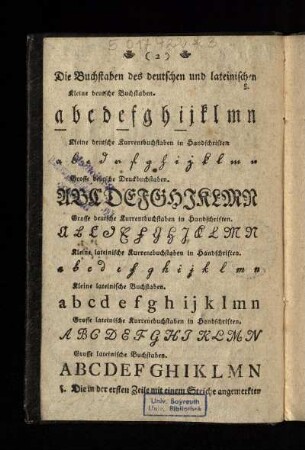 ( 2 )
Die Buchstaben des deutschen und lateinischen
Kleine deutsche Buchstaben.
a b c d e f g h i j k l m n
Kleine deutsche Kurrentbuchstaben in Handschriften
a b c d e f g h i j k l m n
Grosse deutsche Druckbuchstaben.
A B C D E F G H I J K L M N
Grosse deutsche Kurrentbuchstaben in Handschriften.
A B C D E F G H I J K L M N
Kleine lateinische Kurrentbuchstaben in Handschriften.
a b c d e f g h i j k l m n
Kleine lateinische Buchstaben.
a b c d e f g h i j k l m n
Grosse lateinische Kurrentbuchstaben in Handschriften.
A B C D E F G H I K L M N
Grosse lateinische Buchstaben.
A B C D E F G H I K L M N
Die in der ersten Zeile mit einem Striche angemerkten
Univ. Bayreuth
Univ. Bibliothek